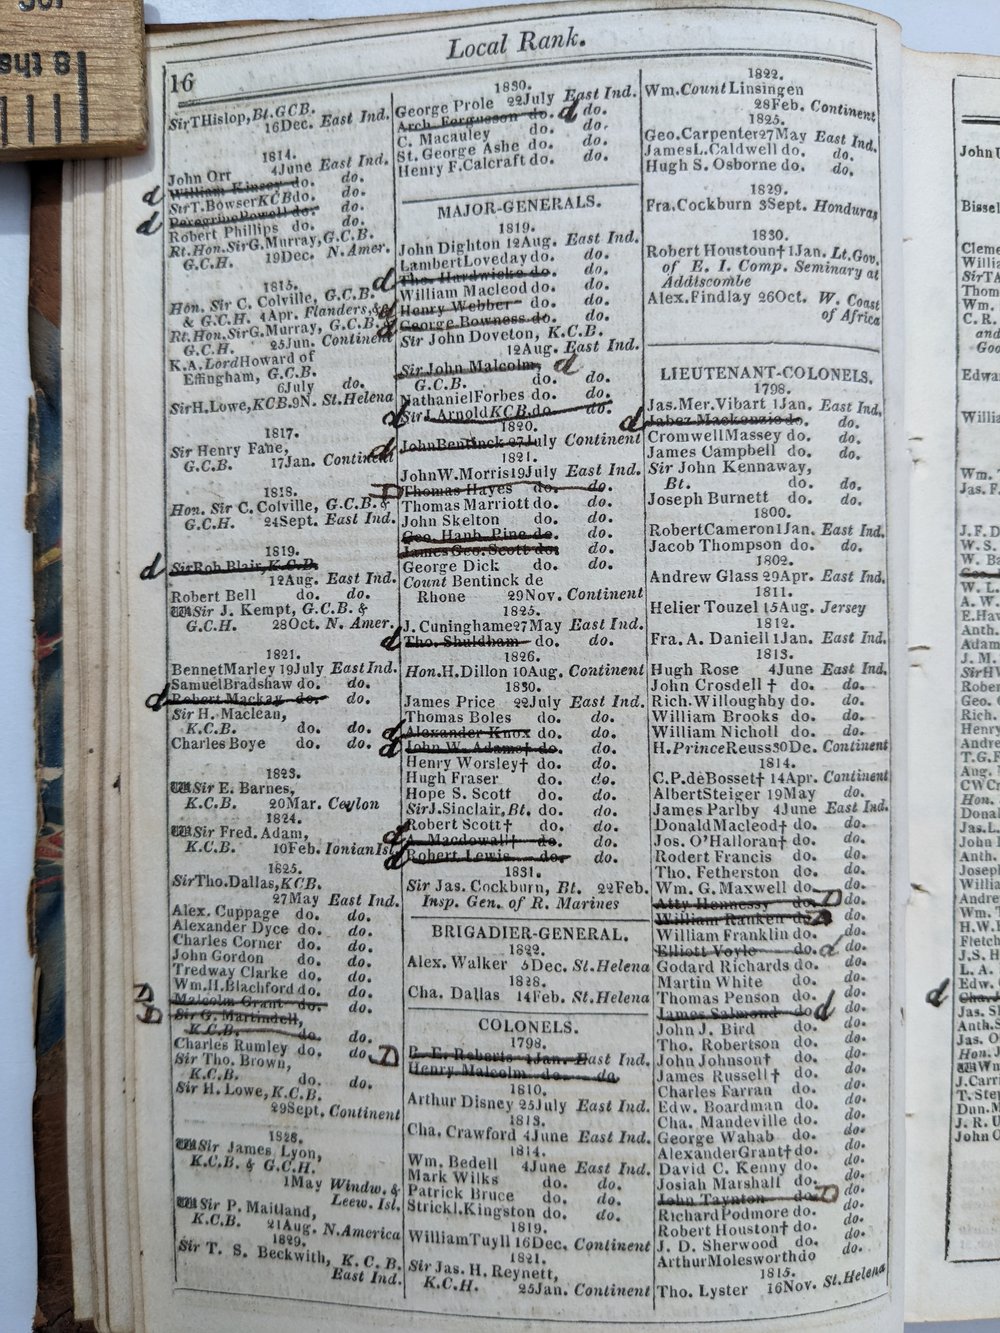 Local Rank.
16
Sir T Hislop, Bt. GCB.
16Dec. East Ind.
1814.
John Orr 4June East Ind.
William Kinsey do. do.
d
Sir T. Bowser KCB do. do.
Peregrine Powell do. do.
d
Robert Phillips do. do.
Rt. Hon. Sir G. Murray, G.C.B.
G.C.H. 19Dec. N. Amer.
1815.
Hon. Sir C. Colville, G.C.B.
& G.C.H. 4Apr. Flanders, &c
Rt. Hon. Sir G. Murray, G.C.B. &
G.C.H. 25Jun. Continent
K.A. Lord Howard of
Effingham, G.C.B.
6July do.
Sir H. Lowe, KCB. 9N. St. Helena
1817.
Sir Henry Fane,
G.C.B. 17Jan. Continent
1818.
Hon. Sir C. Colville, G.C.B. &
G.C.H. 24Sept. East Ind.
1819.
d Sir Rob. Blair, K.C.B.
12Aug. East Ind.
Robert Bell do. do.
Sir J. Kempt, G.C.B. &
G.C.H. 28Oct. N. Amer.
1821.
Bennet Marley 19July East Ind.
Samuel Bradshaw do. do.
d Robert Mackay do. do.
Sir H. Maclean,
K.C.B. do. do.
Charles Boye do. do.
1823.
Sir E. Barnes,
K.C.B. 20Mar. Ceylon
1824.
Sir Fred. Adam,
K.C.B. 10Feb. Ionian Isl.
1825.
Sir Tho. Dallas, KCB.
27May East Ind.
Alex. Cuppage do. do.
Alexander Dyce do. do.
Charles Corner do. do.
John Gordon do. do.
Tredway Clarke do. do.
Wm. H. Blachford do. do.
D Malcolm Grant do. do.
D Sir G. Martindell,
K.C.B. do. do.
Charles Rumley do. do.
Sir Tho. Brown,
K.C.B. do. do.
Sir H. Lowe, K.C.B.
29Sept. Continent
1828.
Sir James Lyon,
K.C.B. & G.C.H.
1May Windw. &
Leew. Isl.
Sir P. Maitland,
K.C.B. 21Aug. N. America
1829.
Sir T. S. Beckwith, K. C. B.
East Ind.
1830.
George Prole 22July East Ind.
Arch. Fergusson do. d do.
C. Macauley do. do.
St. George Ashe do. do.
Henry F. Calcraft do. do.
MAJOR-GENERALS.
1819.
John Dighton 12Aug. East Ind.
Lambert Loveday do. do.
d Tho. Hardwicke do. do.
William Macleod do. do.
d Henry Webber do. do.
d George Bowness do. do.
Sir John Doveton, K.C.B.
12Aug. East Ind.
Sir John Malcolm, d
G.C.B. do. do.
Nathaniel Forbes do. do.
d Sir J. Arnold KCB. do. do.
1820.
d John Bentinck 27July Continent
1821.
John W. Morris 19July East Ind.
D Thomas Hayes do. do.
Thomas Marriott do. do.
John Skelton do. do.
Geo. Hanb. Pine do. do.
James Geo. Scott do. do.
George Dick do. do.
Count Bentinck de
Rhone 29Nov. Continent
1825.
J. Cuninghame 27May East Ind.
d Tho. Shuldham do. do.
1826.
Hon. H. Dillon 10Aug. Continent
1830.
James Price 22July East Ind.
Thomas Boles do. do.
d Alexander Knox do. do.
d John W. Adams† do. do.
Henry Worsley† do. do.
Hugh Fraser do. do.
Hope S. Scott do. do.
Sir J. Sinclair, Bt. do. do.
Robert Scott† do. do.
d A. Macdowall† do. do.
d Robert Lewis do. do.
1831.
Sir Jas. Cockburn, Bt. 22Feb.
Insp. Gen. of R. Marines
BRIGADIER-GENERAL.
1822.
Alex. Walker 5Dec. St. Helena
1828.
Cha. Dallas 14Feb. St. Helena
COLONELS.
1798.
D R. E. Roberts 1Jan. East Ind.
Henry Malcolm do. do.
1810.
Arthur Disney 25July East Ind.
1813.
Cha. Crawford 4June East Ind.
1814.
Wm. Bedell 4June East Ind.
Mark Wilks do. do.
Patrick Bruce do. do.
Strickl. Kingston do. do.
1819.
William Tuyll 16Dec. Continent
1821.
Sir Jas. H. Reynett,
K.C.H. 25Jan. Continent
1822.
Wm. Count Linsingen
28Feb. Continent
1825.
Geo. Carpenter 27May East Ind.
James L. Caldwell do. do.
Hugh S. Osborne do. do.
1829.
Fra. Cockburn 3Sept. Honduras
1830.
Robert Houstoun† 1Jan. Lt. Gov.
of E. I. Comp. Seminary at
Addiscombe
Alex. Findlay 26Oct. W. Coast
of Africa
LIEUTENANT-COLONELS.
1798.
Jas. Mer. Vibart 1Jan. East Ind.
d Jabez Mackenzie do. do.
Cromwell Massey do. do.
James Campbell do. do.
Sir John Kennaway,
Bt. do. do.
Joseph Burnett do. do.
1800.
Robert Cameron 1Jan. East Ind.
Jacob Thompson do. do.
1802.
Andrew Glass 29Apr. East Ind.
1811.
Helier Touzel 15Aug. Jersey
1812.
Fra. A. Daniell 1Jan. East Ind.
1813.
Hugh Rose 4June East Ind.
John Crosdell † do. do.
Rich. Willoughby do. do.
William Brooks do. do.
William Nicholl do. do.
H. Prince Reuss 30De. Continent
1814.
C. P. de Bosset† 14Apr. Continent
Albert Steiger 19May do.
James Parlby 4June East Ind.
Donald Macleod† do. do.
Jos. O'Halloran† do. do.
Rodert Francis do. do.
Tho. Fetherston do. do.
Wm. G. Maxwell do. do.
Atty Hennessy do. D do.
William Ranken do. D do.
William Franklin do. do.
Elliott Voyle do. d do.
Godard Richards do. do.
Martin White do. do.
Thomas Penson do. do.
James Salmond do. d do.
John J. Bird do. do.
Tho. Robertson do. do.
John Johnson† do. do.
James Russell† do. do.
Charles Farran do. do.
Edw. Boardman do. do.
Cha. Mandeville do. do.
George Wahab do. do.
Alexander Grant† do. do.
David C. Kenny do. do.
Josiah Marshall do. do.
John Taynton do. D do.
Richard Podmore do. do.
Robert Houston† do. do.
J. D. Sherwood do. do.
Arthur Molesworth do do.
1815.
Tho. Lyster 16Nov. St. Helena